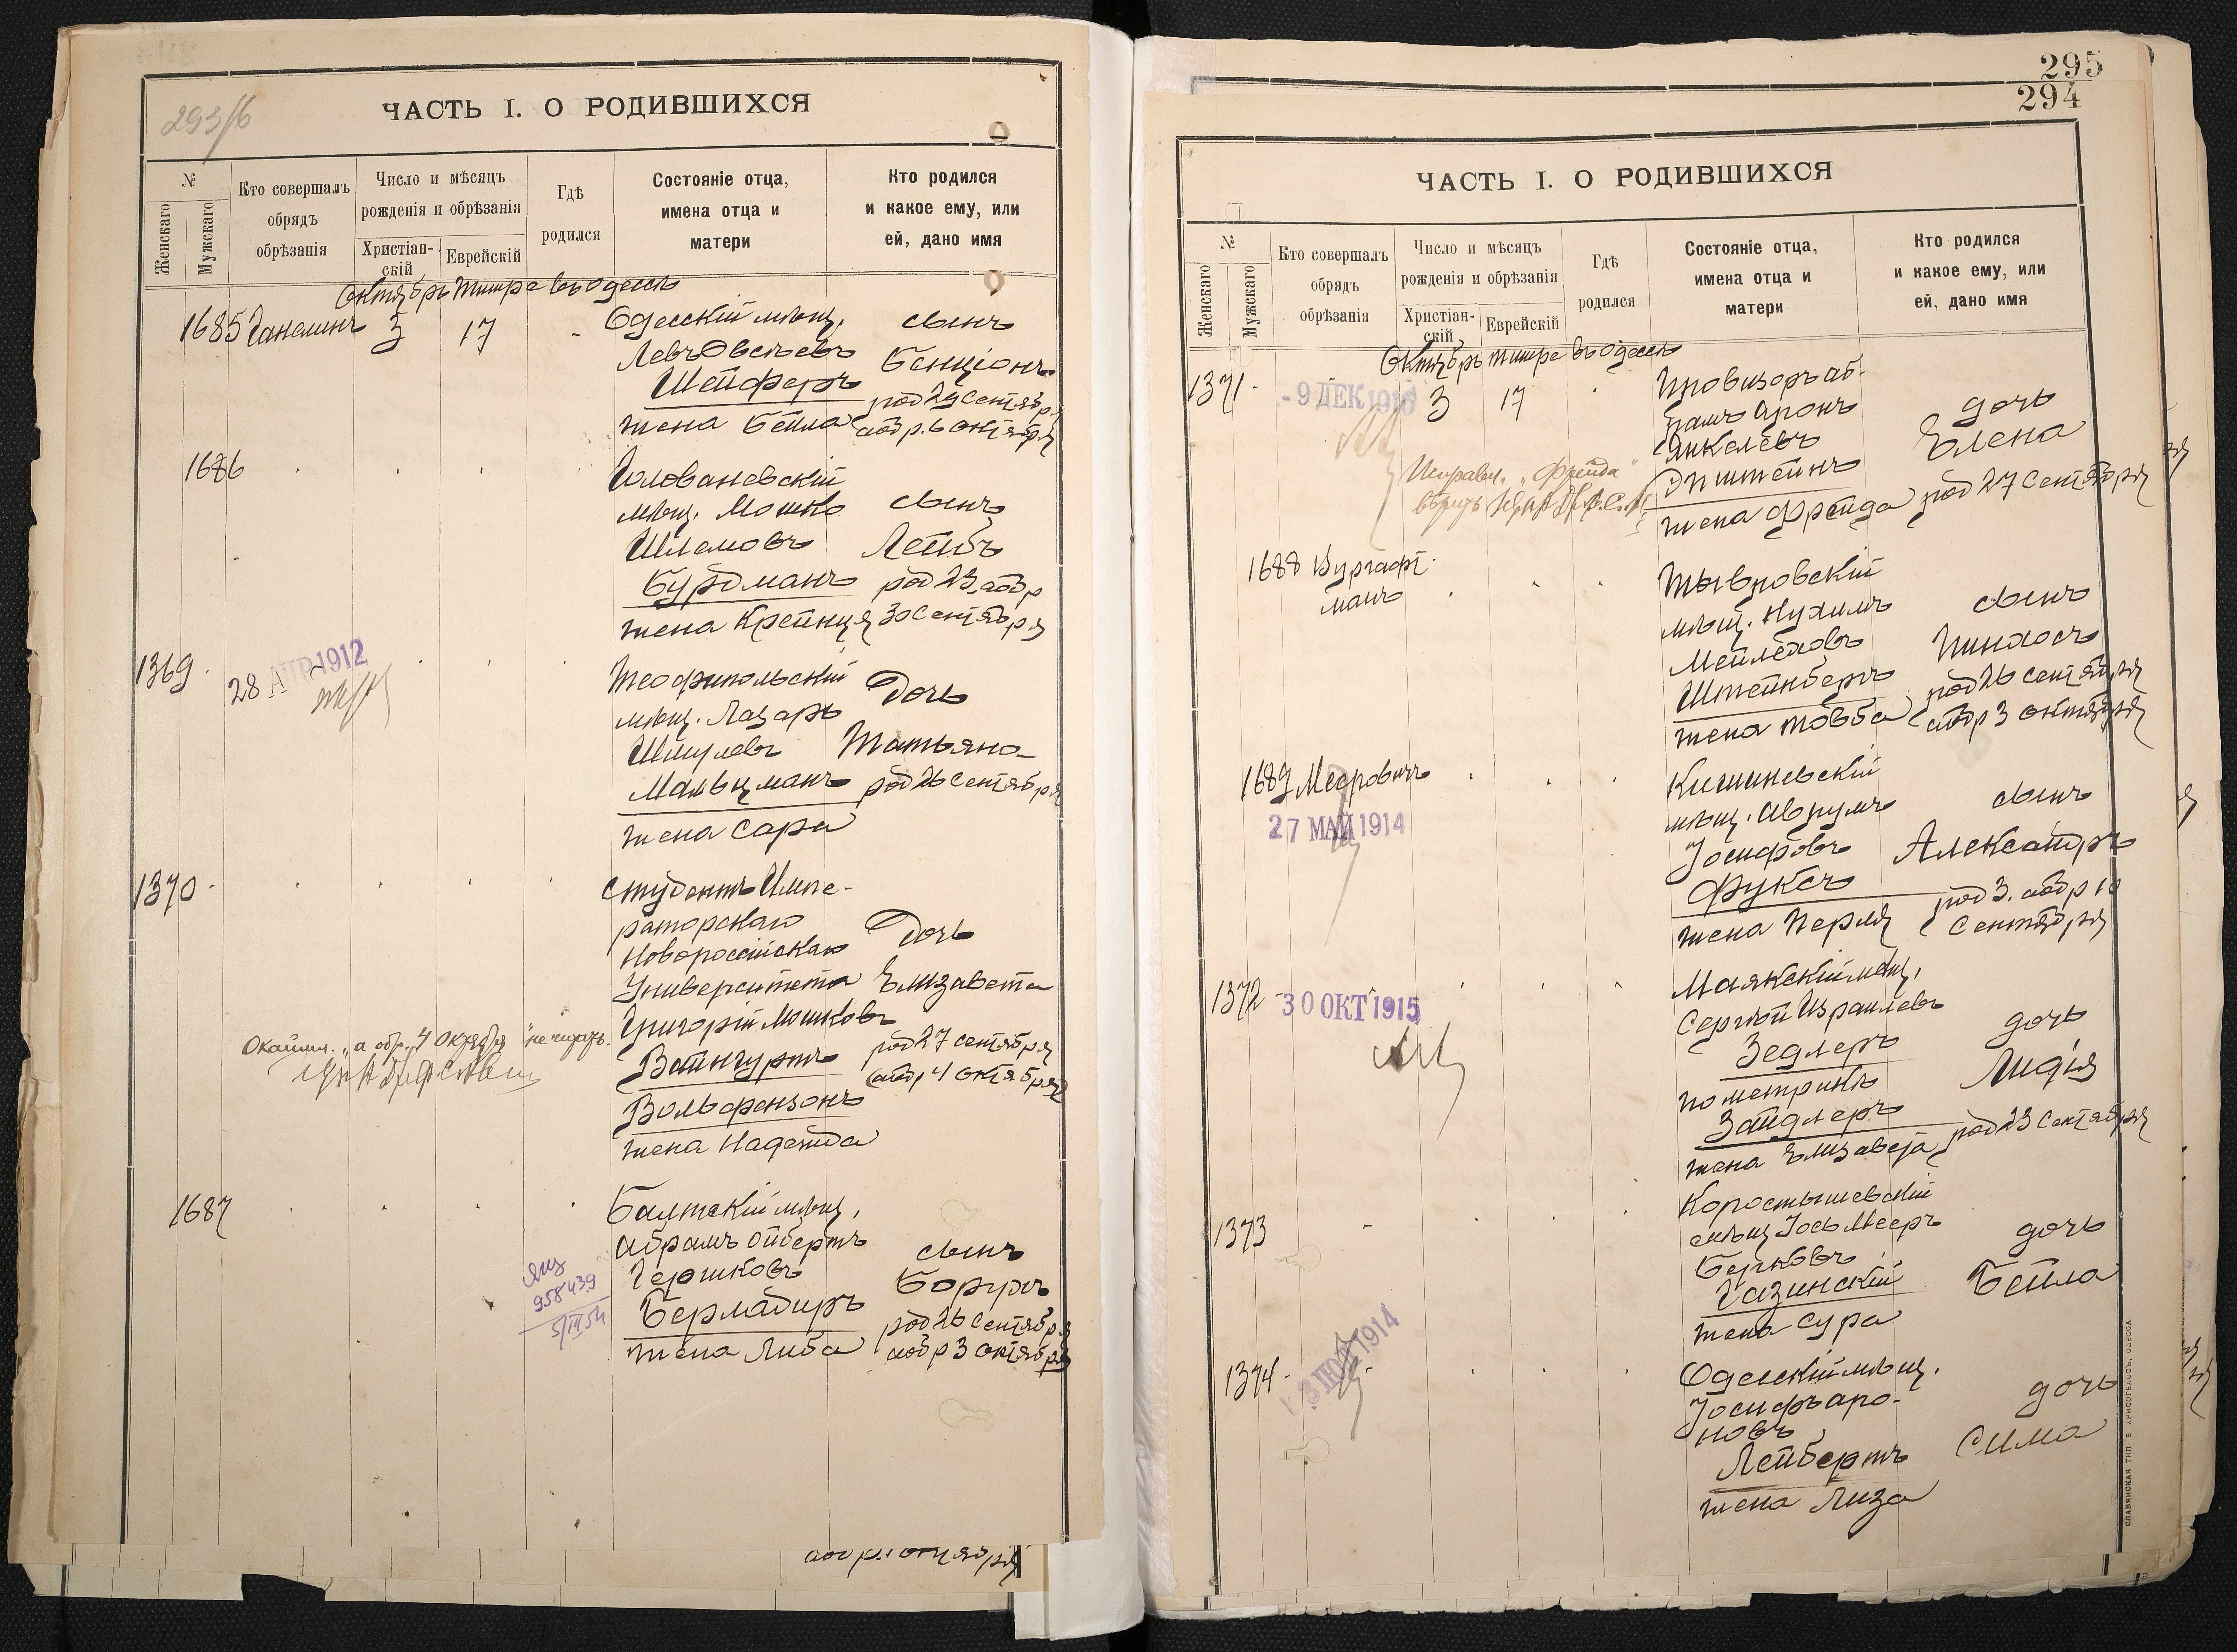 293/б
ЧАСТЬ I. О РОДИВШИХСЯ
№
Женскаго
Мужскаго
Кто совершалъ
обрядъ
обрѣзанія
Число и мѣсяцъ
рожденія и обрѣзанія
Христіан-
скій
Еврейскій
Гдѣ
родился
Состояніе отца,
имена отца и
матери
Кто родился
и какое ему, или
ей, дано имя
Октябрь Тишре въ Одессѣ
1685 3 17
Одесскій мѣщ.
Левъ Овсѣевъ
Шейферъ
жена Бейла
сынъ
Бенціонъ
род 29 Сентябр.
а обр. 6 октября
1686
Головановскій
мѣщ. Мошко
Шлемовъ
Бурдманъ
жена Крейнця
сынъ
Лейбъ
род 23, а обр
30 Сентября
1369
28 АПР 1912
Теофипольскій
мѣщ. Лазарь
Шмулевъ
Мальцманъ
жена Сара
Дочь
Татьяна
род 26 Сентября
1370
студентъ Импе-
раторскаго
Новороссійскаго
Университета
Григорій Мошковъ
Вайнгуртъ
Вольфензонъ
жена Надежда
Дочь
Елизавета
род 27 сентября
а обр 4 октября
"а обр. 4 Октября" не читать.
1687
Балтскій мѣщ.
Абрамъ Ойбертъ
Гершковъ
Бермадиръ
жена Либа
сынъ
Борухъ
род 26 Сентябр
а обр 3 октября
958439
5/III 54
а обр. 1 октября
295
294
ЧАСТЬ I. О РОДИВШИХСЯ
№
Женскаго
Мужскаго
Кто совершалъ
обрядъ
обрѣзанія
Число и мѣсяцъ
рожденія и обрѣзанія
Христіан-
скій
Еврейскій
Гдѣ
родился
Состояніе отца,
имена отца и
матери
Кто родился
и какое ему, или
ей, дано имя
Октябрь Тишре въ Одессѣ
1371 - 9 ДЕК 3 17
Провизоръ Аб-
рамъ Аронъ
Янкелевъ
Эпштейнъ
жена Фрейда
дочь
Елена
род 27 Сентября
Исправл. "Фрейда"
вѣрить
1688 Вургафт-
манъ
Тывровскій
мѣщ. Нухимъ
Мейлеховъ
Штейнбергъ
жена Товба
сынъ
Пинхосъ
род 26 сентября
а обр 3 октября
1689 Мееровичъ
27 МАЙ 1914
Кишиневскій
мѣщ. Аврумъ
Іосифовъ
Фуксъ
жена Перля
сынъ
Александръ
род 3. а обр 10
Сентября
1372 30 ОКТ 1915
Маякскій мѣщ.
Сергѣй Израилевъ
Зедлеръ
по метрикѣ
Зайдлеръ
жена Елизавета
дочь
Лидія
род 23 Сентября
1373
Коростышевскій
мѣщ Іось Мееръ
Берковъ
Газинскій
жена Сура
дочь
Бейла
1374
1914
Одесскій мѣщ.
Іосифъ Аро-
новъ
Лейбертъ
жена Лиза
дочь
Сима
СЛАВЯНСКАЯ ТИП. Е. ХРИСОГЕЛОСЪ, ОДЕССА